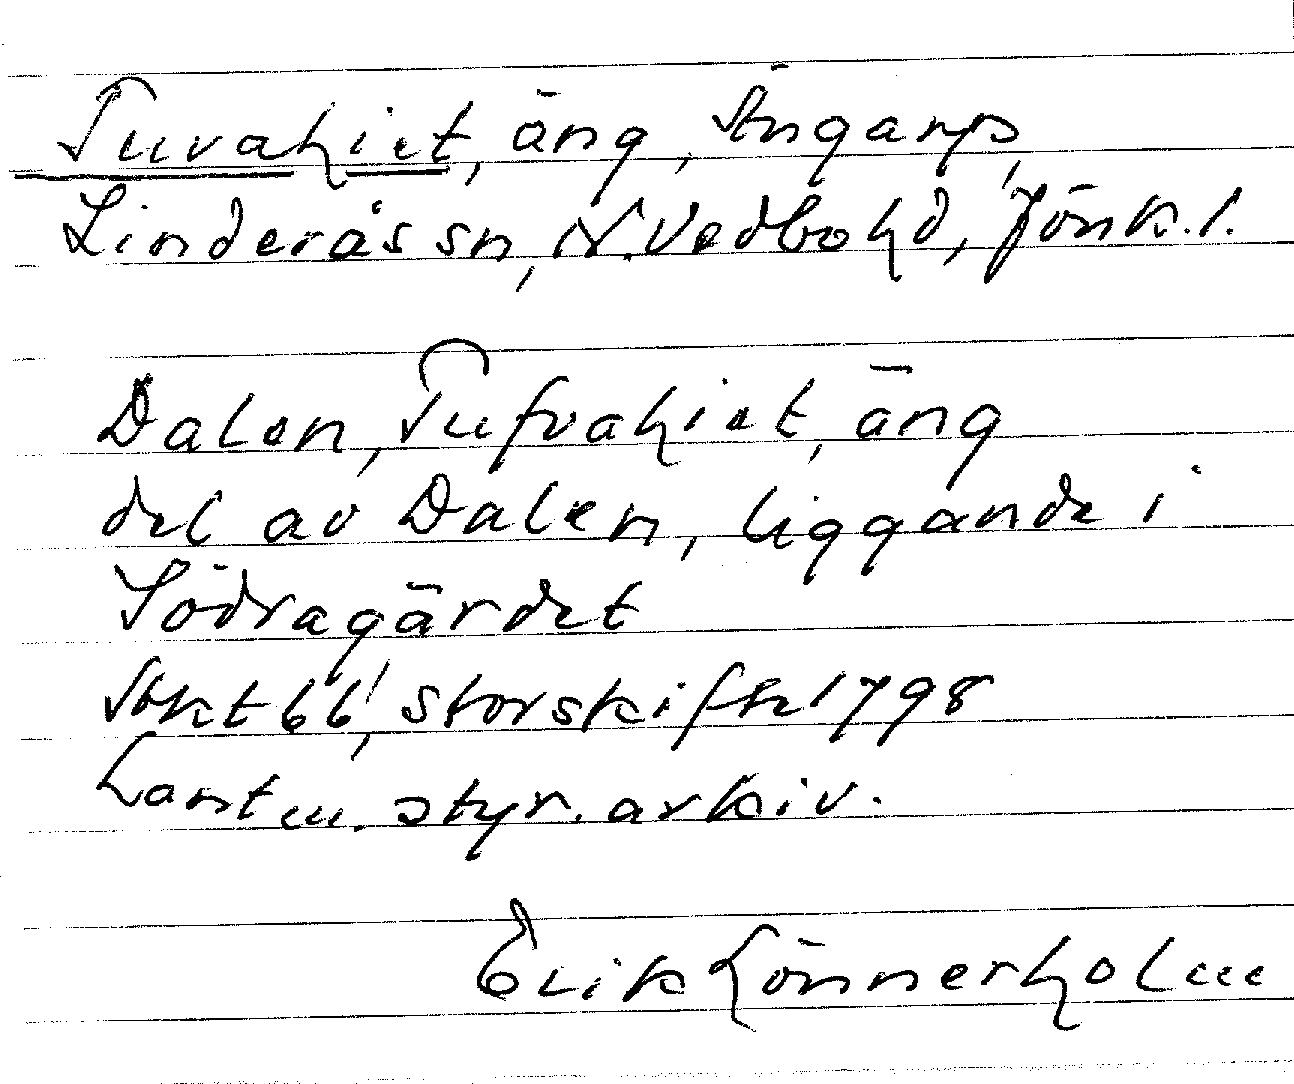 Tuvahiet, äng, Ängarp,
Linderås sn, N. Vedbo hd, Jönk. l.
Dalen, Tufvahiet, äng
del av Dalen, liggande i
Södragärdet
Akt 66, storskifte 1798
Lantm. styr. arkiv.
Erik Lönnerholm